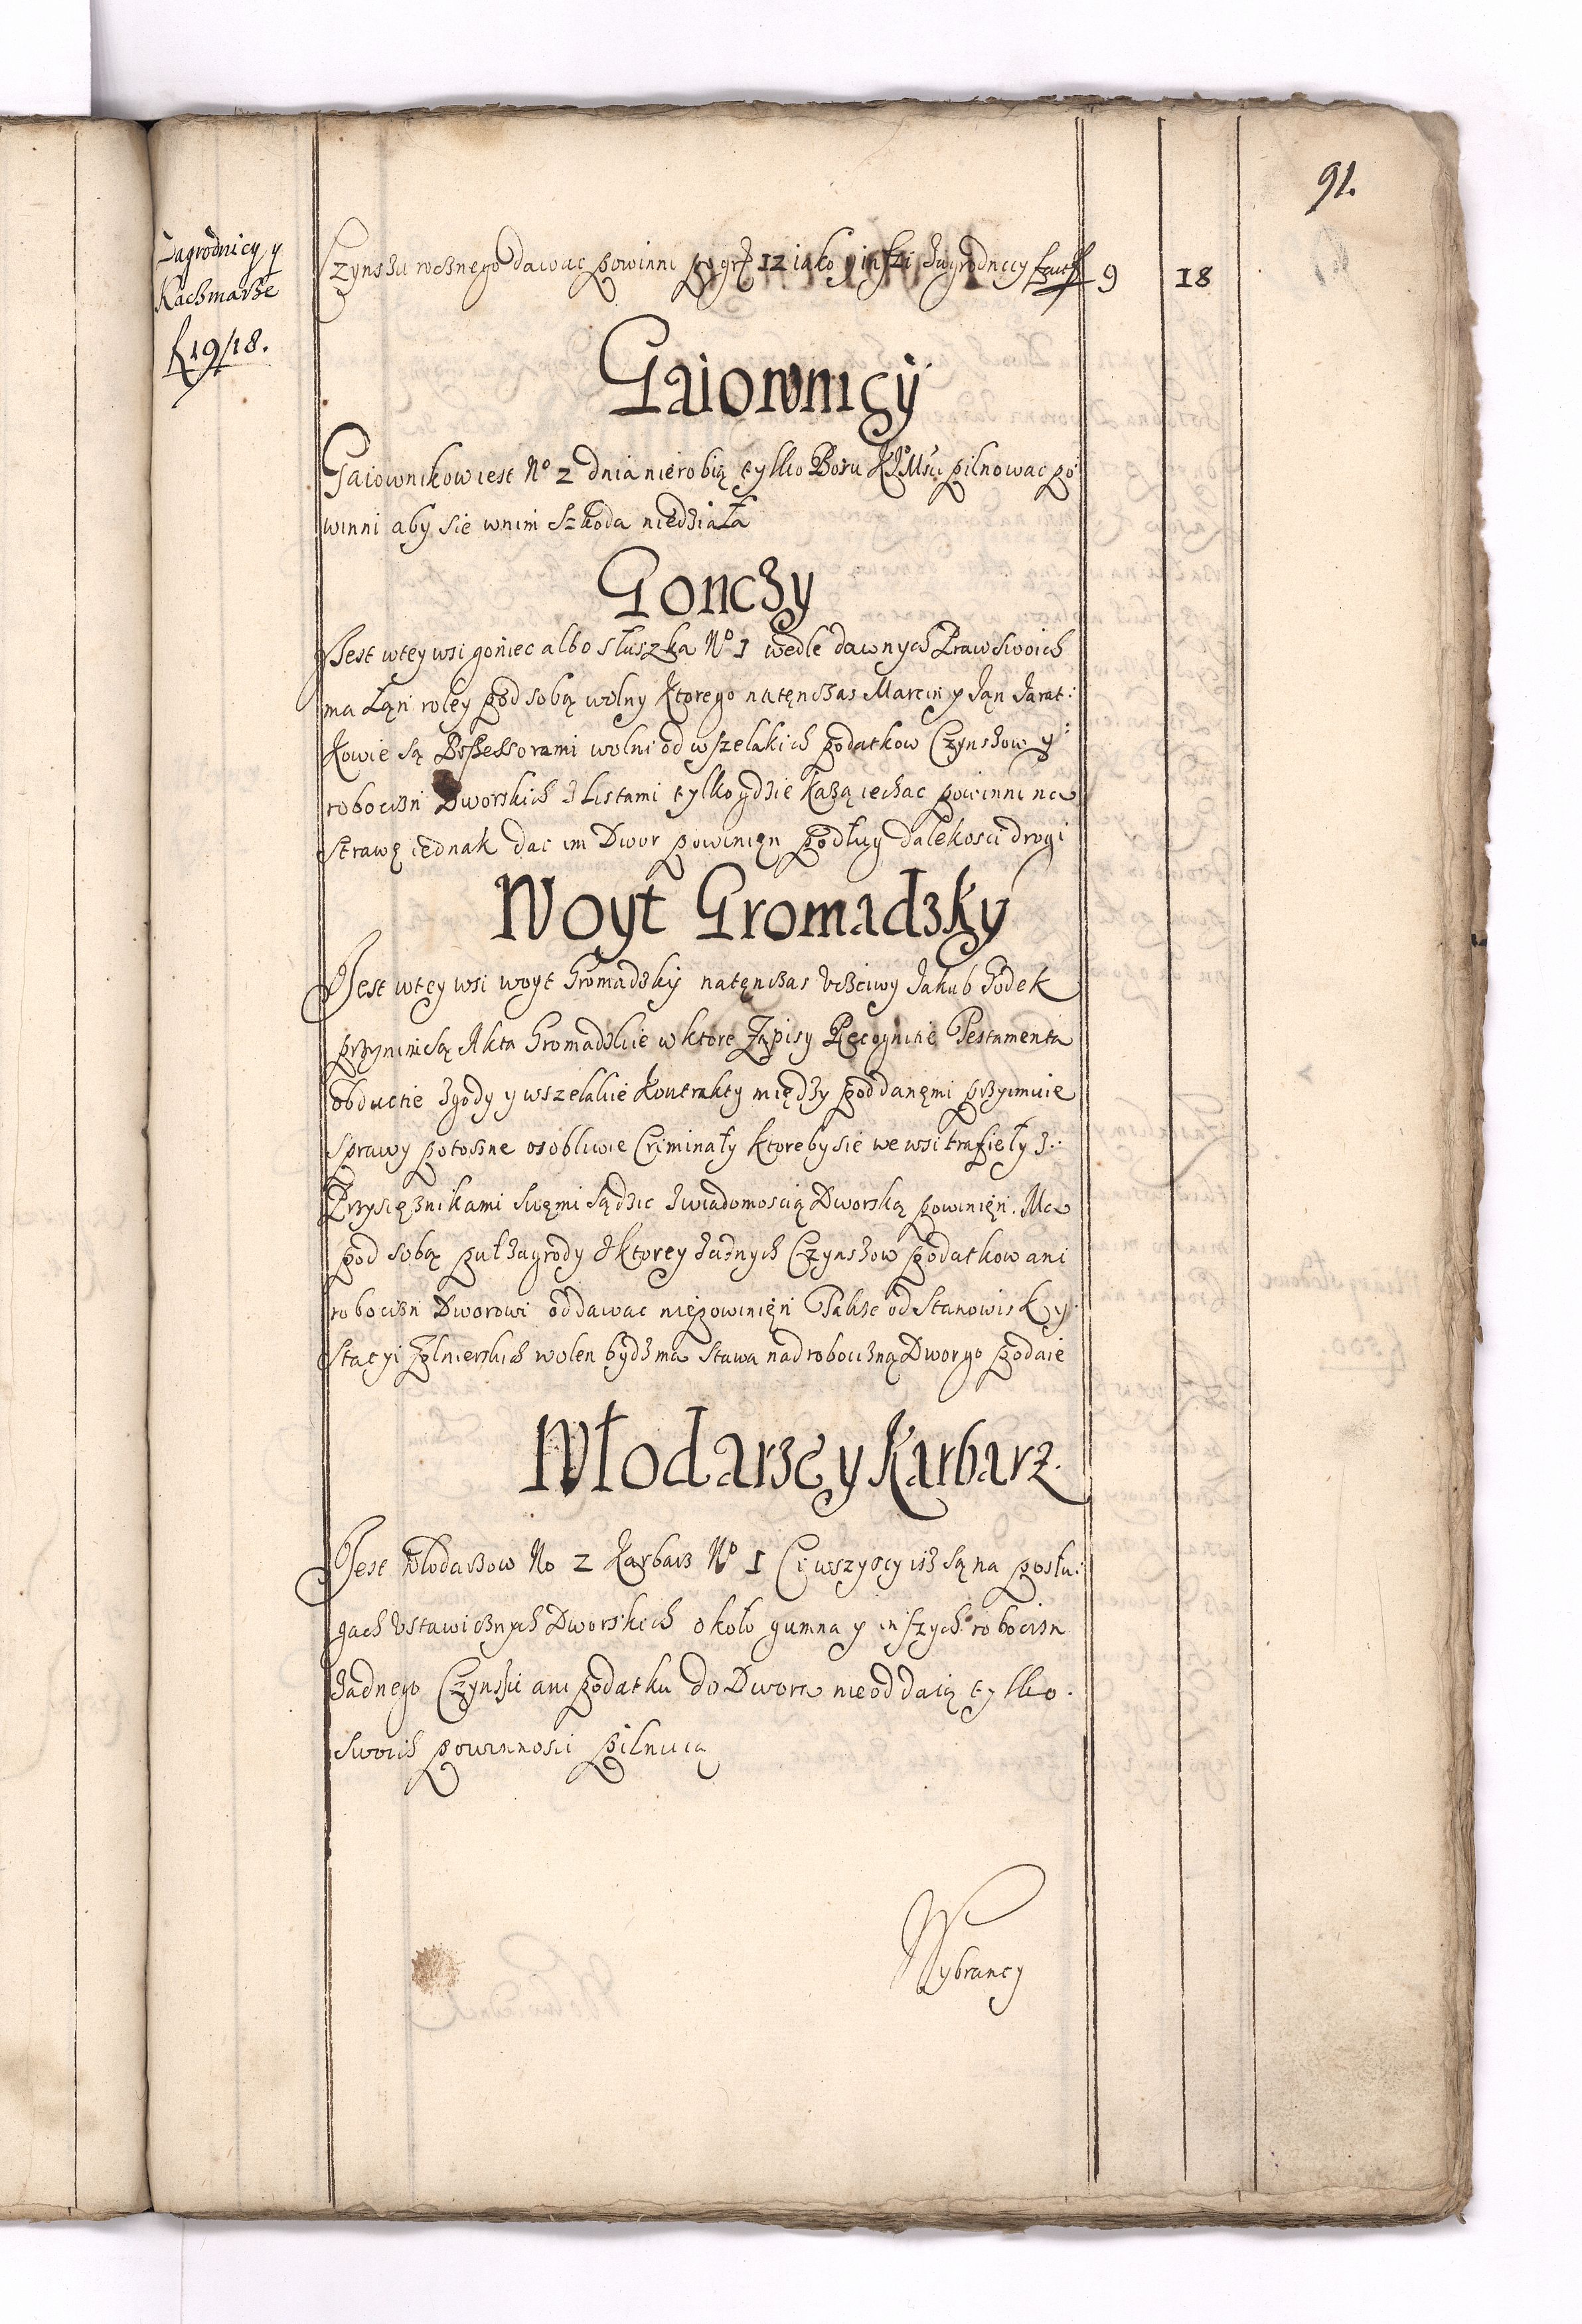 91.
Zagrodnicy y
Kaczmarze
f 19/18.
Czynszu rocznego dawac powinni po gr 12 iako y inszi Zagrodnicy facit 9 18
Gaiownicy
Gaiownikow iest No 2 dnia nie robią tylko Boru pilnowac po
winni aby sie wnim szkoda niedziała
Gonczy
Jest wtey wsi goniec albo słuszka No 1 wedle dawnych Praw swoich
ma Łąn roley pod sobą wolny ktorego natęnczas Marcin y Ján Jarat:
kowie są Possessorami wolni od wszelakich podatkow Czynszow y
robocizn Dworskich z Listami tylko gdzie każą iechac powinni na
strawę iednak dac im Dwor powinięn podług dalekosci drogi
Woyt Gromadzky
Jest wtey wsi woyt Gromadzkij natęnczas Vczciwy Jakub Godek
przy nim są Akta Gromadzkie w ktore Zapisy Recognitie Testamenta
obductie zgody y wszelakie Kontrakty między poddanęmi przyimuie
sprawy potoczne osobliwie Criminały ktoreby sie we wsi trafieły z:
Przysięznikami swęmi sądzic z wiadomoscią Dworską powinięn. Ma
pod sobą puł zagrody z ktorey żadnych Czynszow podatkow ani
robocizn Dworowi oddawac niepowinięn Takze od Stanowisk y
stacyi Zolnierskich wolen bydz ma stawa nad robocizną Dwor go podaie
Włodarze y Karbarz.
Jest Włodarzow No 2 Karbarz No 1 Ci wszyscy isz są na posłu:
gach Vstawicznych Dworskich około gumna y inszych robocizn
żadnego Czynszu ani podatku do Dwora nie oddaią tylko.
swoich powinnosci pilnuią
Wybrancy